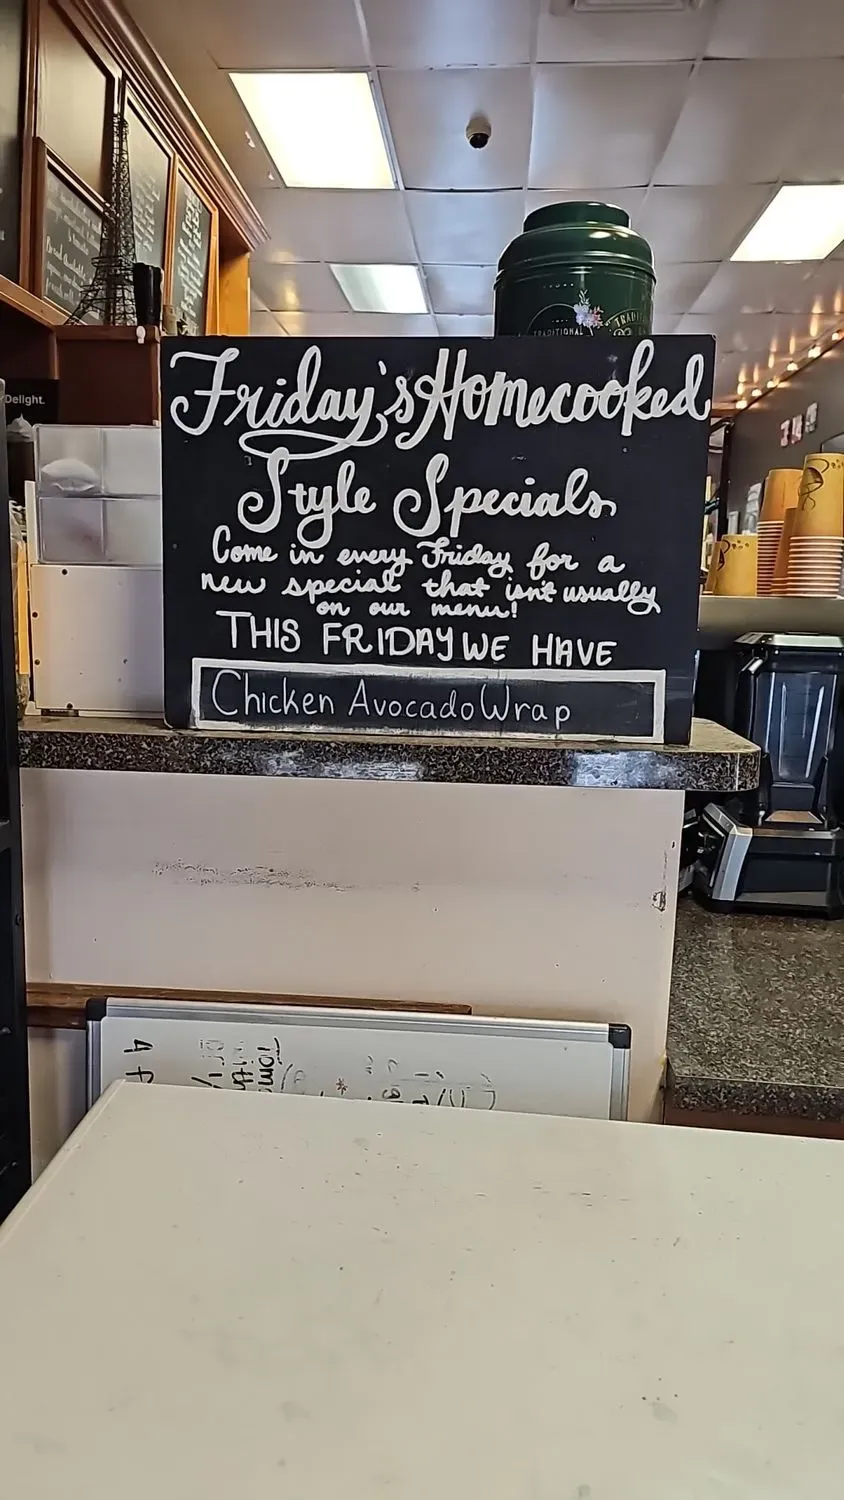 Delight.
TRADITIONAL
Friday's Homecooked
Style Specials
Come in every Friday for a
new special that isn't usually
on our menu!
THIS FRIDAY WE HAVE
Chicken Avocado Wrap